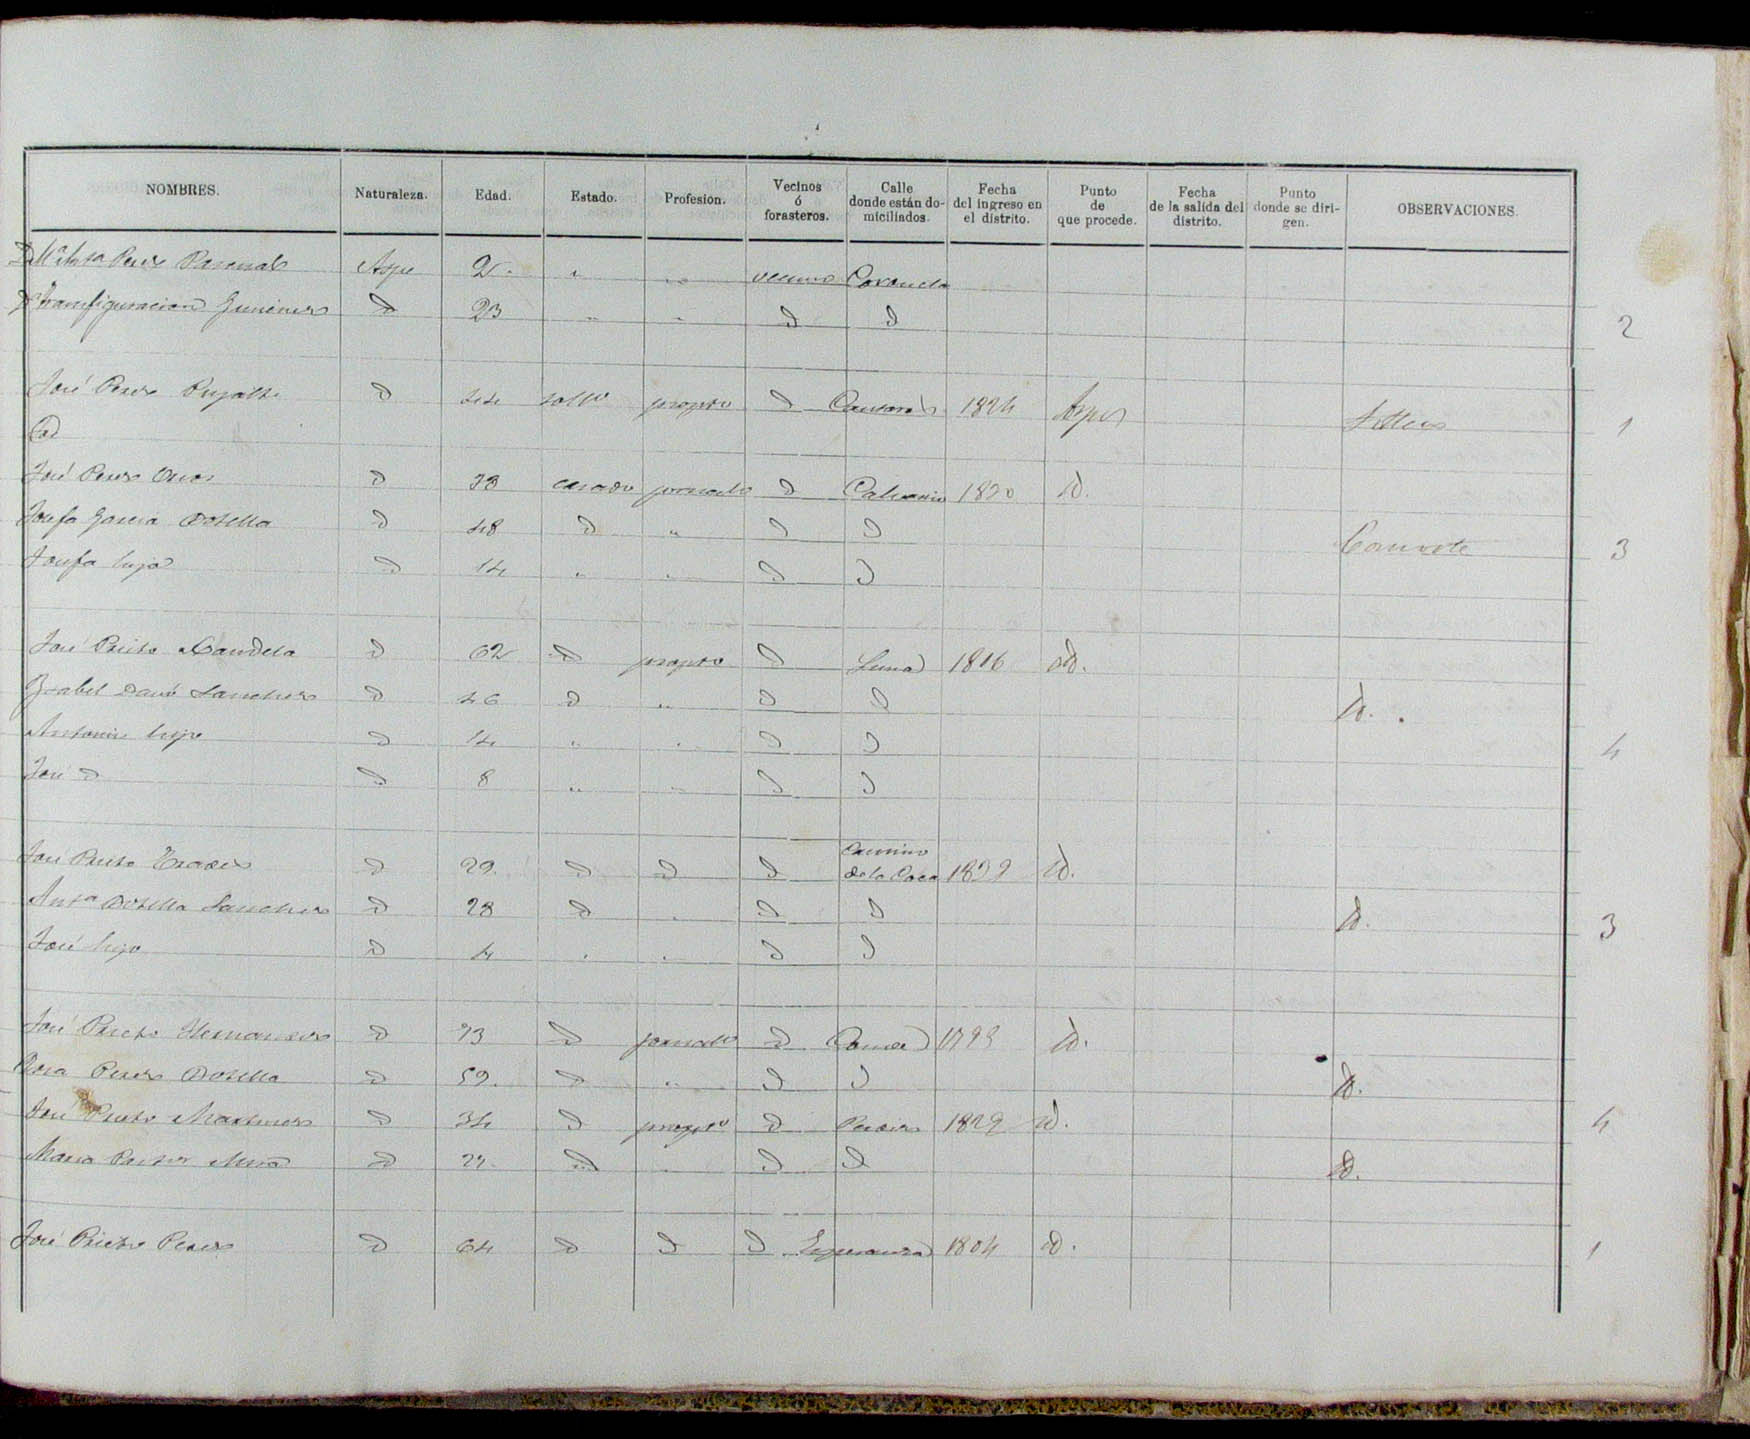 NOMBRES. Naturaleza. Edad. Estado. Profesion. Vecinos ó forasteros. Calle donde están domiciliados. Fecha del ingreso en el distrito. Punto de que procede. Fecha de la salida del distrito. Punto donde se dirigen. OBSERVACIONES.
Perez Pascual Aspe 2 " " vecino Coronela
Transfiguracion Gimenez D 23 " " D D
2
José Perez Pujalte D 44 solto propro D 1824 Aspe
1
José Perez D 38 casado jornalo D Calvario 1830 id.
Josefa Garcia Botella D 48 D " D D
Josefa hija D 14 " " D D
3
José Prieto Candela D 62 D propro D Luna 1816 id.
Ysabel Sanchez D 46 D " D D id.
Antonio hijo D 14 " " D D
4
José D D 8 " " D D
José Prieto D 29. D D D Camino de la Coca 1839 id.
Anta Botella Sanchez D 28 D " D D id.
3
José hijo D 4 " " D D
José Prieto Hernandez D 73 D jornalo D 1795 id.
Rosa Perez Botella D 59. D " D D id.
José Prieto Martinez D 34 D propro D 1829 id.
4
Maria Pastor Mira D 27. D " D D id.
José Prieto Perez D 64 D D D Esperanza 1804 id.
1